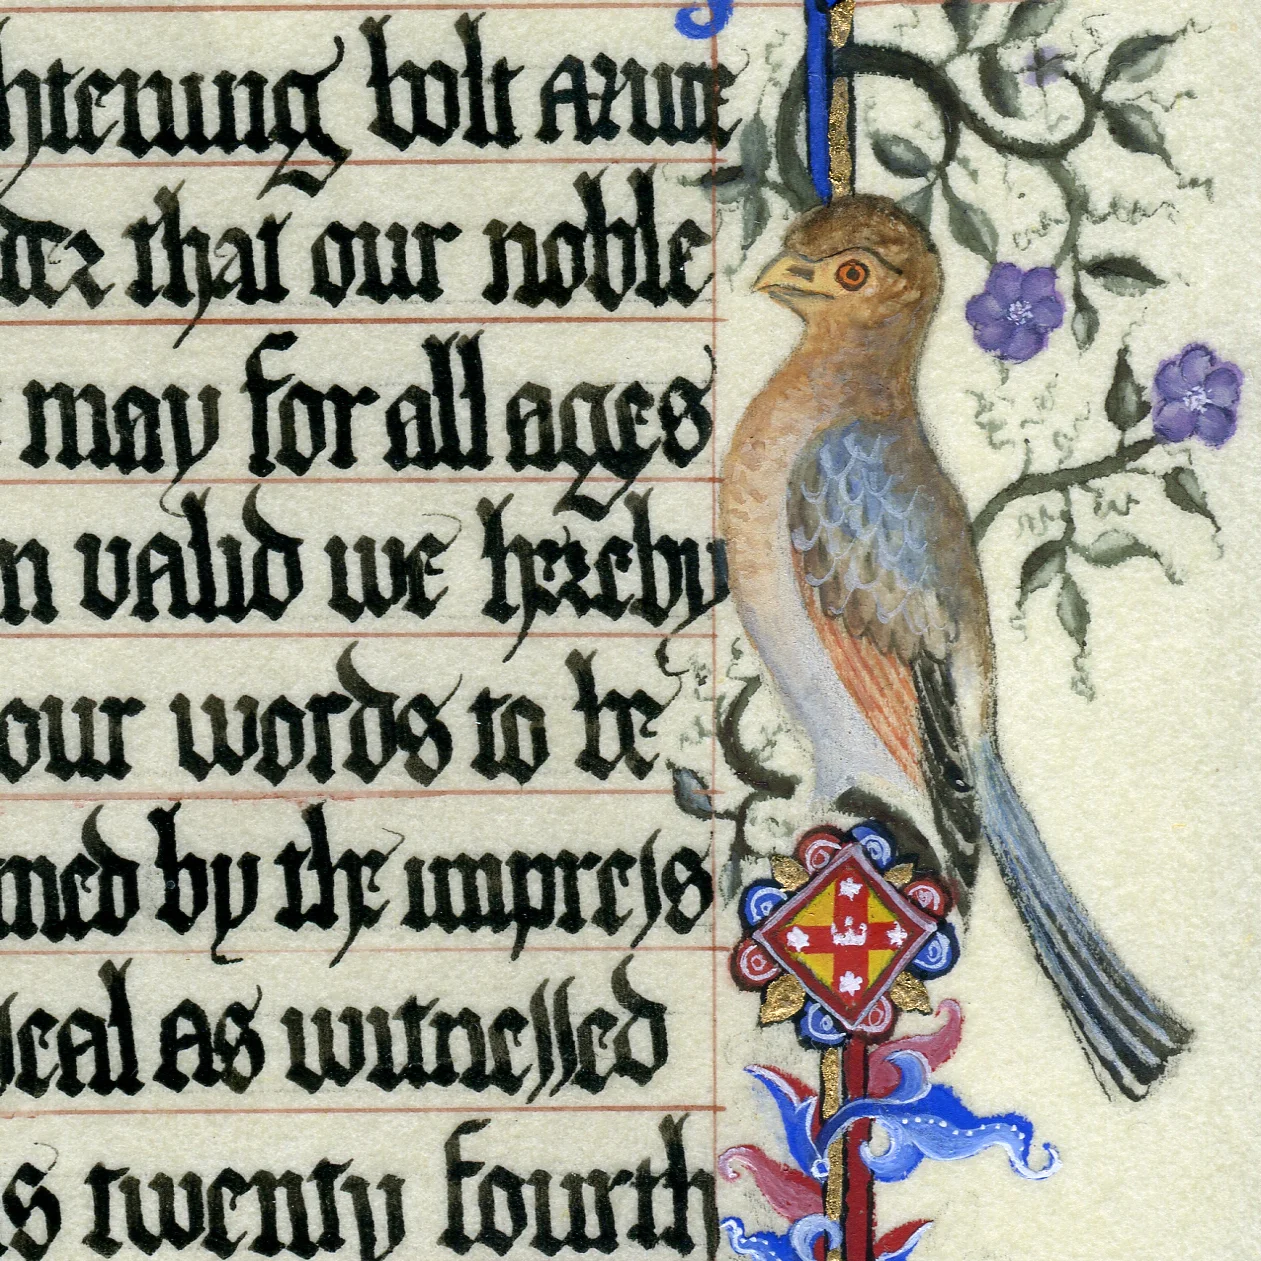 htening bolt Azure
der that our noble
may for all ages
n valid we hereby
our words to be
med by the impress
seal As witnessed
s twenty fourth